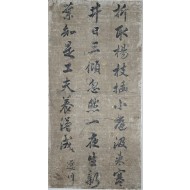 折取楊枝插小瓶汲來寒
井日三傾忽然一夜生新
葉知是工夫養得成